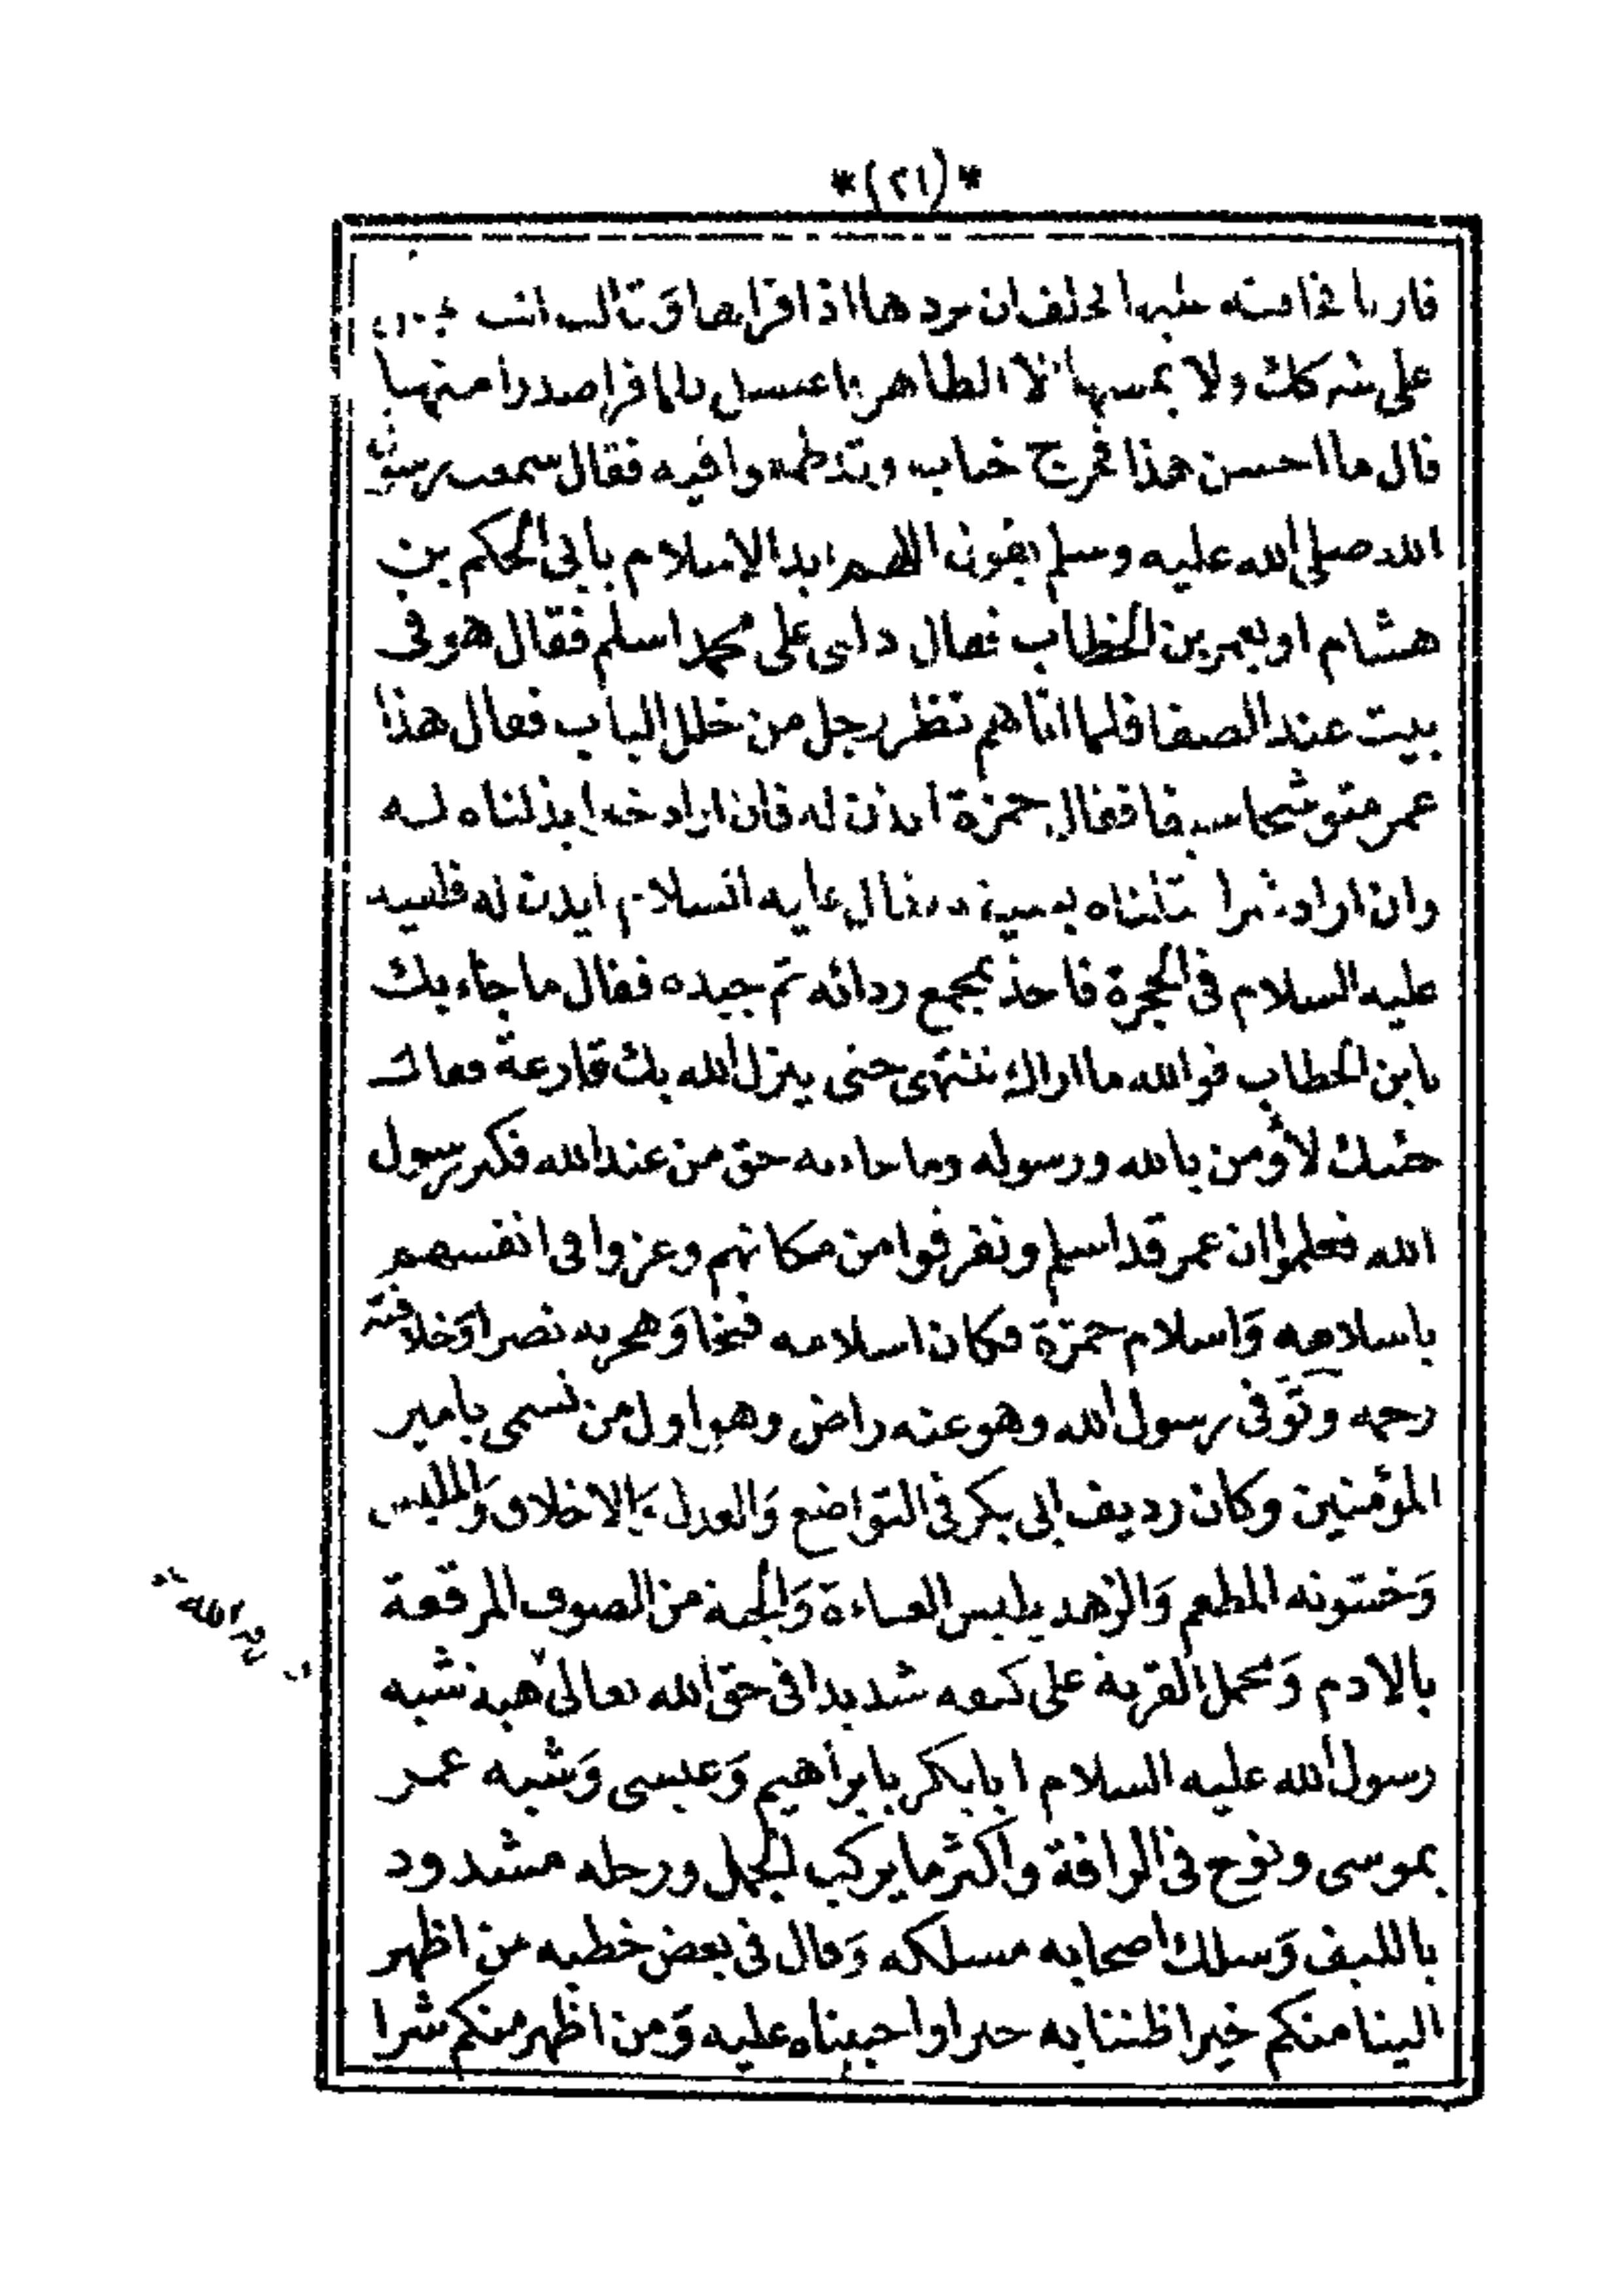 *(٢١)*
فحلف ان يردها اذا قرأها وقالت انت نجس
على شركك ولا يمسها الا الطاهر فاغتسل فلما قرا صدرا منها
قال ما احسن هذا فخرج خباب وقال سمعت رسول
الله صلى الله عليه وسلم يقول اللهم ايد الاسلام بابى الحكم بن
هشام او بعمر بن الخطاب فقال دلنى على محمد اسلم فقال هو فى
بيت عند الصفا فلما اتاهم نظر رجل من خلل الباب فقال هذا
عمر متوشحا سيفا فقال حمزة ايذن له فان اراد خيرا بذلناه له
وان اراد شرا قتلناه بسيفه فقال عليه السلام ايذن له فلقيه
عليه السلام فى الحجرة فاخذ بمجمع ردائه ثم جبده فقال ما جاء بك
يا بن الخطاب فوالله ما اراك تنتهى حتى ينزل الله بك قارعة فقال
جئتك لاؤمن بالله ورسوله وما جاء به حق من عند الله فكبر رسول
الله فعلموا ان عمر قد اسلم وتفرقوا من مكانهم وعزوا فى انفسهم
باسلامه وَاسلام حمزة فكان اسلامه فتحا وَهجرته نصرا وَخلافته
رحمه وتَوفى رسول الله وهو عنه راض وهو اول من تسمى بامير
المؤمنين وكان رديف ابى بكر فى التواضع وَالعدل وَالاخلاق وَالملبس
وَخشونه المطعم وَالزهد يلبس العباءة وَالجبة من الصوف المرقعة
بالادم وَيحمل القربة على كتفه شديدا فى حق الله تعالى هيبة شبه
رسول الله عليه السلام ابا بكر بابراهيم وَعيسى وَشبه عمر
بموسى ونوح فى الرافة واكثر ما يركب الجمل ورحله مشدود
بالليف وَسلك اصحابه مسلكه وَقال فى بعض خطبه من اظهر
الينا منكم خيرا ظننا به خيرا واحببناه عليه وَمن اظهر منكم شرا